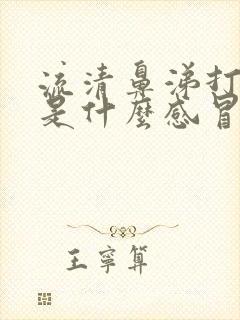 流清鼻涕打
是什麼感冒
王寧算